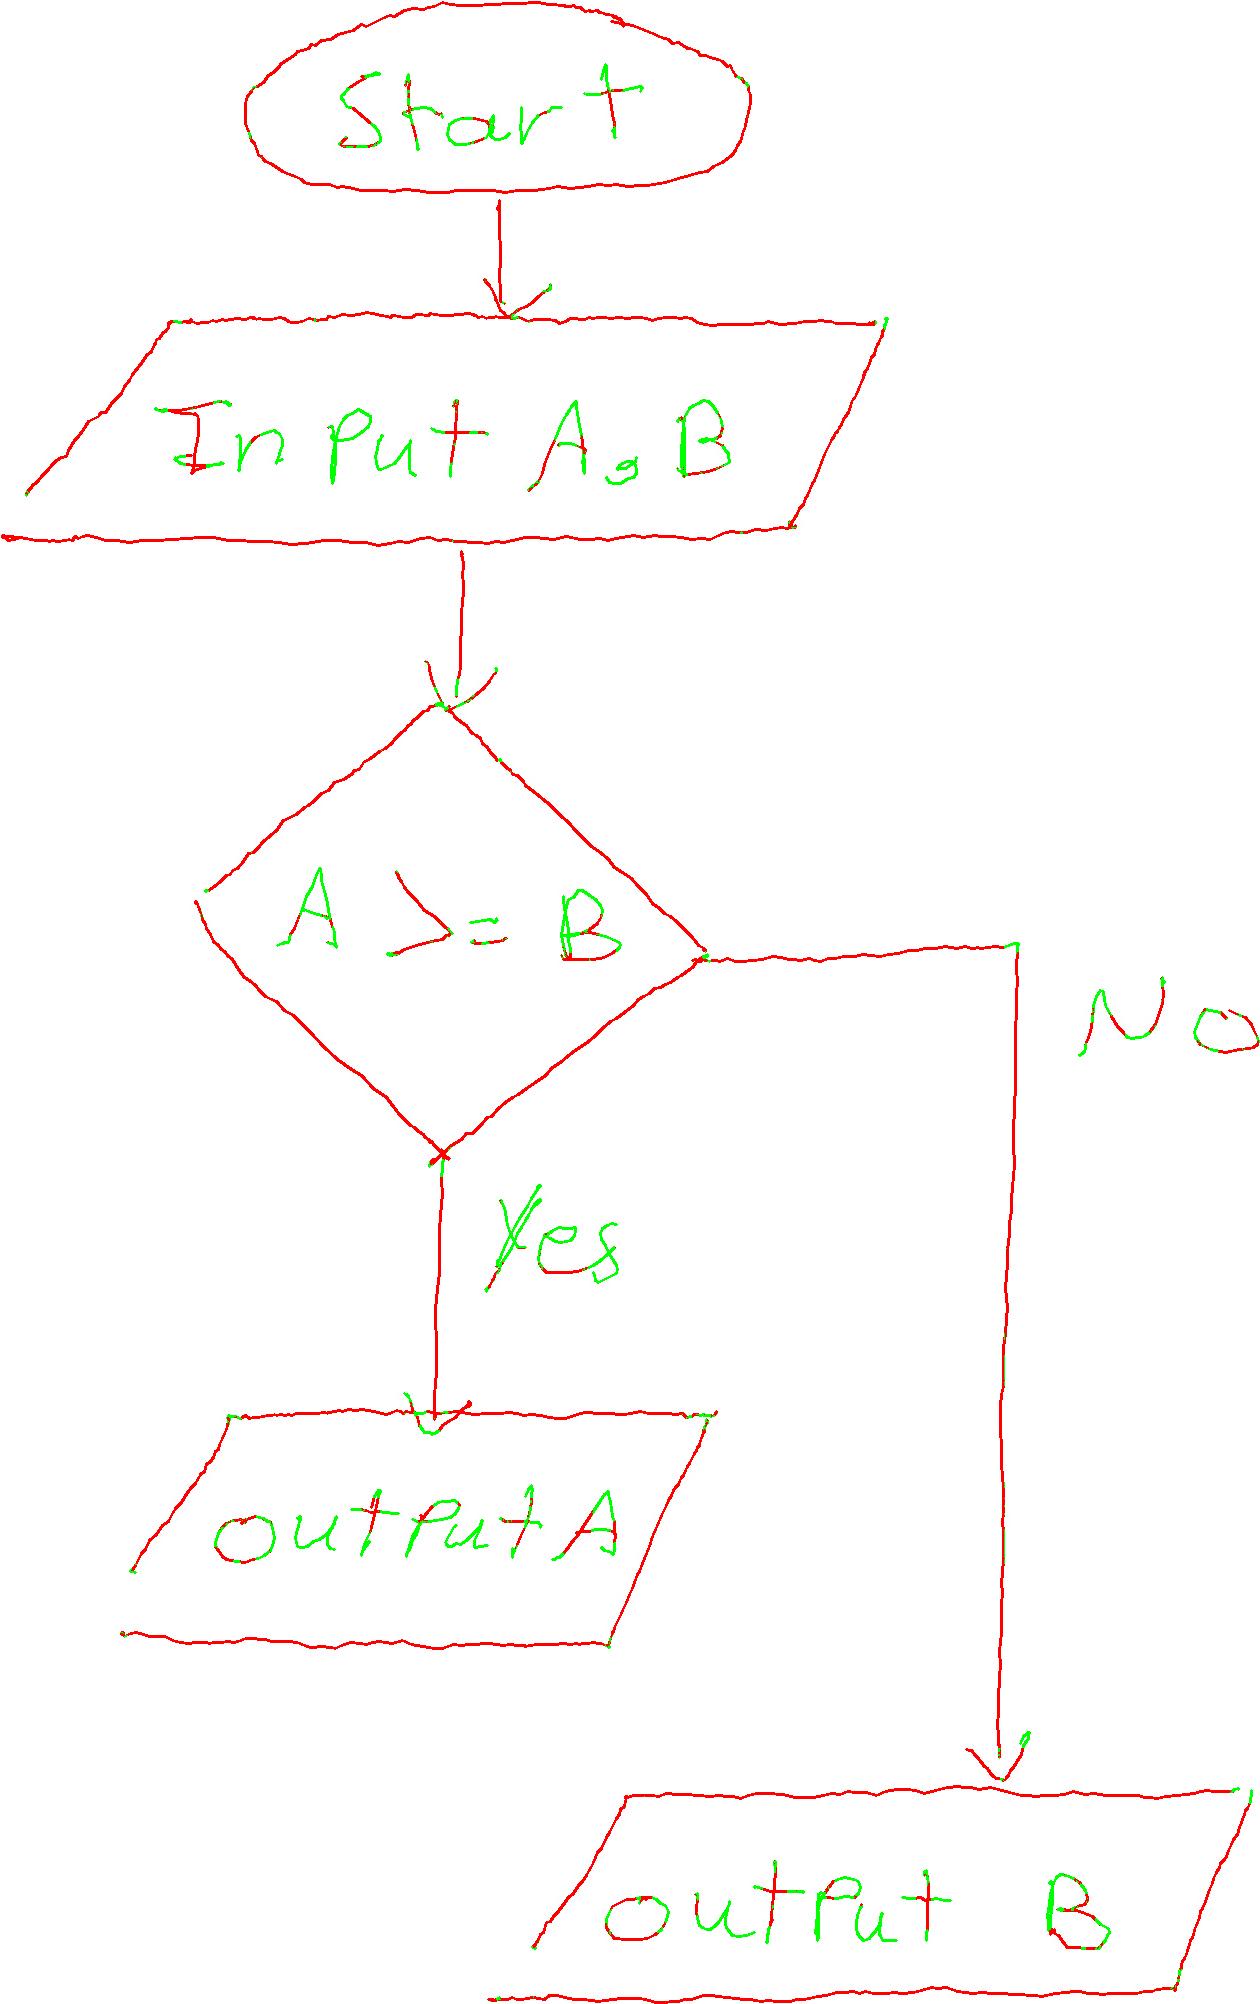 Start
Input A, B
A >= B
No
Yes
output A
output B